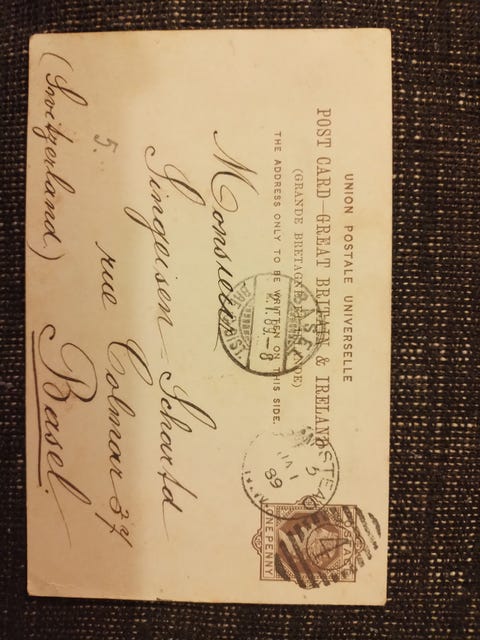 UNION POSTALE UNIVERSELLE
POST CARD—GREAT BRITAIN & IRELAND
(GRANDE BRETAGNE ET IRLANDE)
THE ADDRESS ONLY TO BE WRITTEN ON THIS SIDE.
POSTAGE
ONE PENNY
JA 1
89
BASEL
2.I.89.-8
Monsieur
Singeisen-
rue Colmar 34
5.
Basel.
(Switzerland)